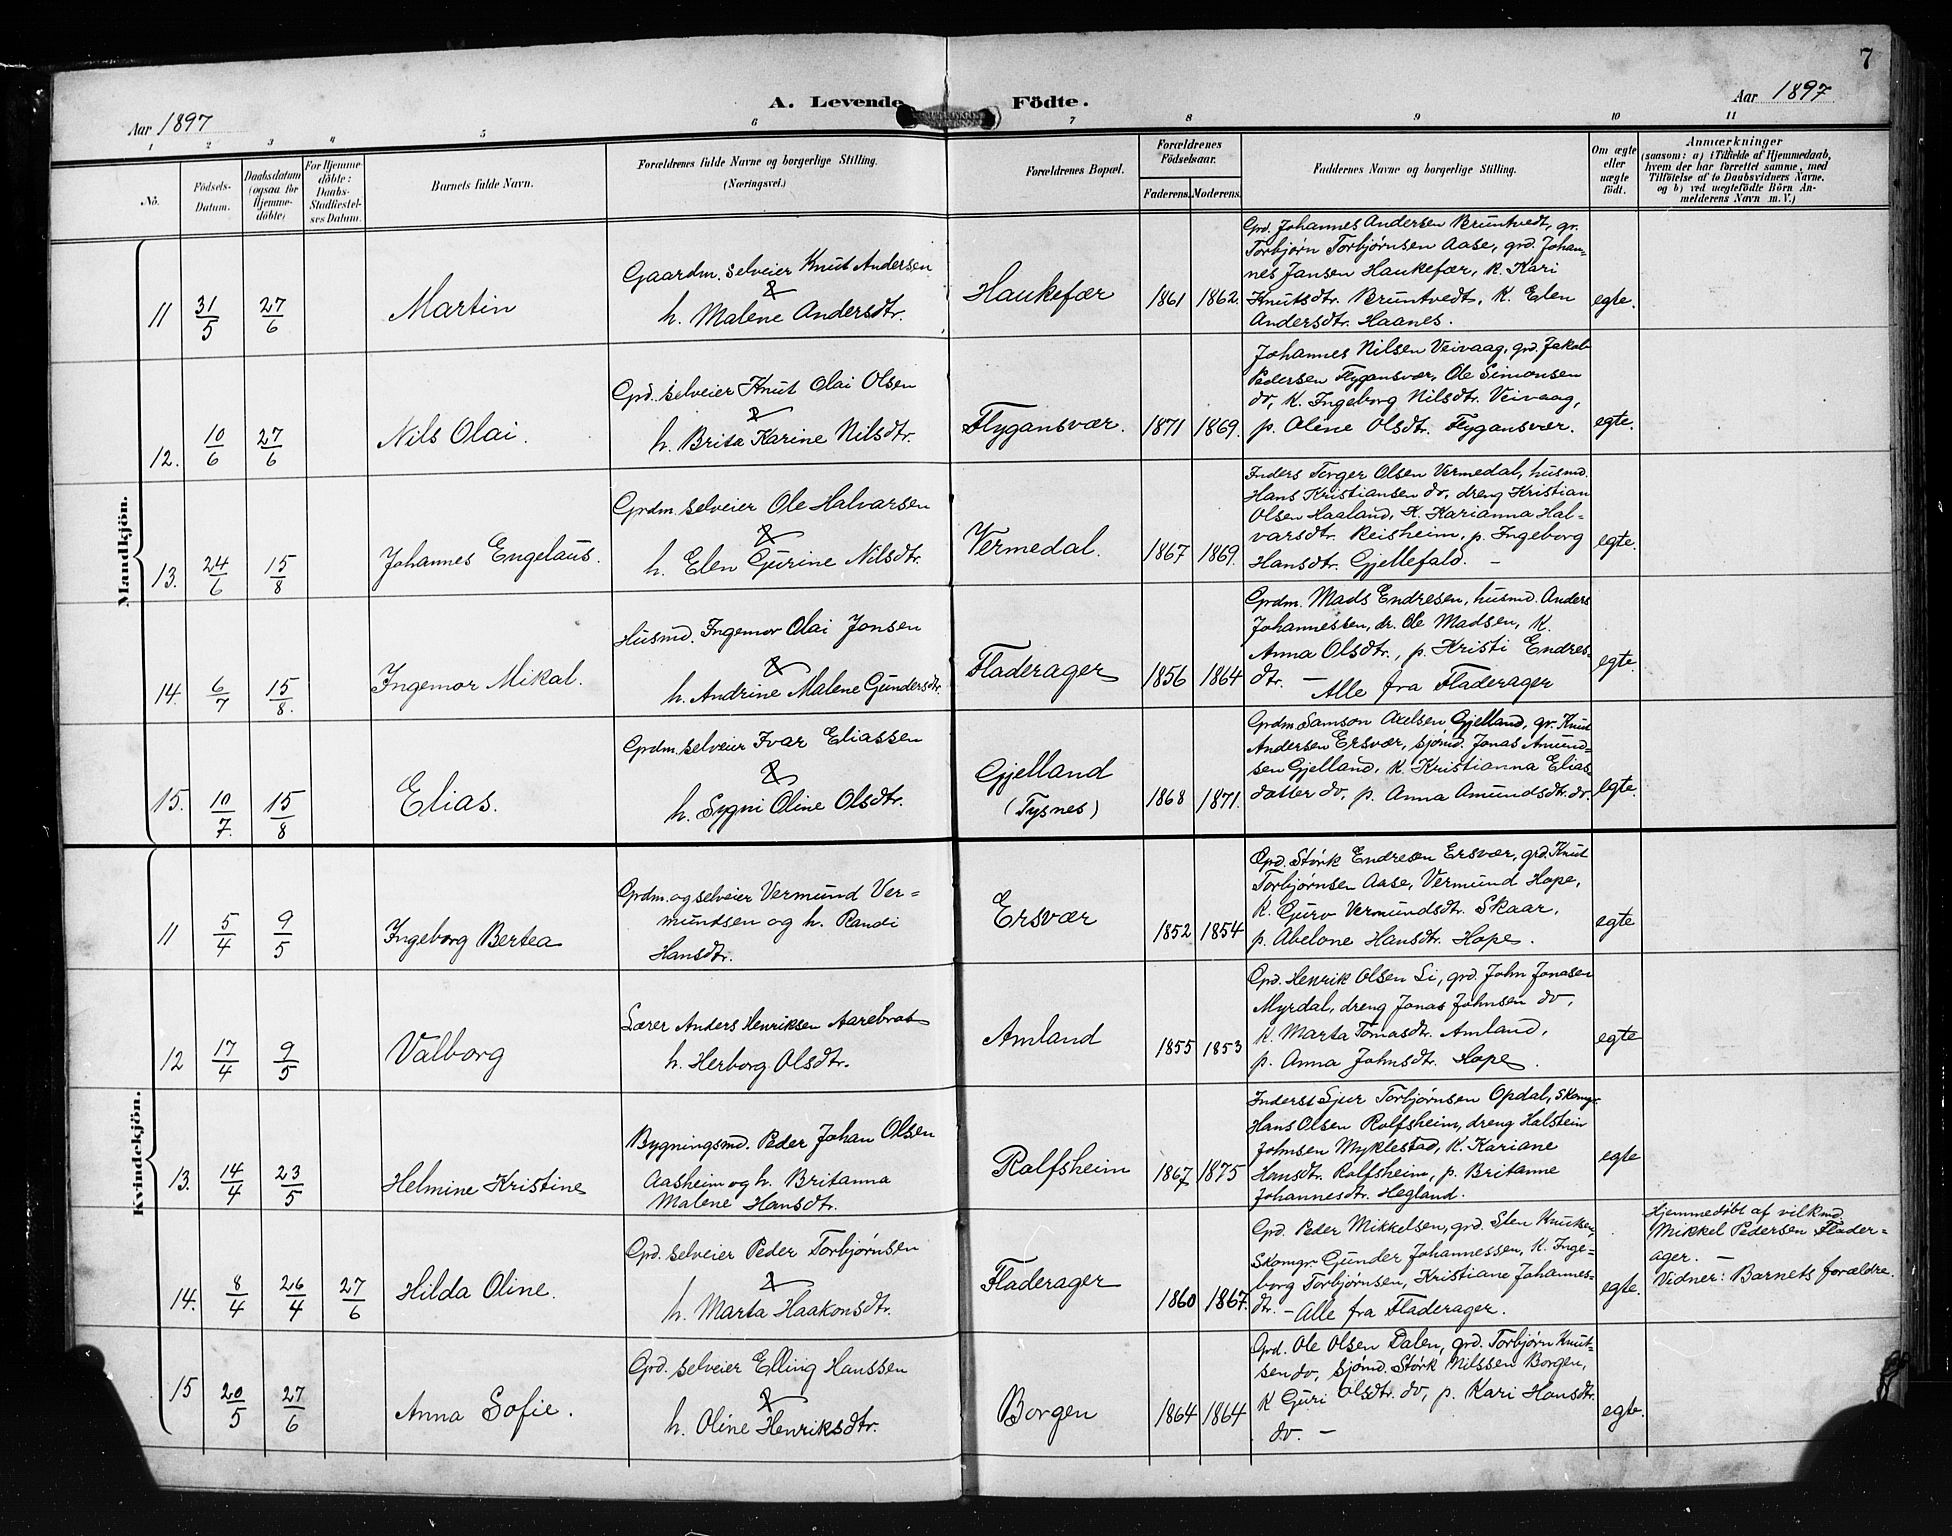 7
Aar 1897
A. Levende Födte.
Aar 1897
1 2 3 4 5 6 7 8 9 10 11
No.
Födsels-
Datum.
Daabsdatum
(ogsaa for
Hjemme-
döbte)
For Hjemme-
döbte:
Daabs-
Stadfæstel-
ses Datum.
Barnets fulde Navn.
Forældrenes fulde Navne og borgerlige Stilling.
(Næringsvei.)
Forældrenes Bopæl.
Forældrenes
Födselsaar.
Faderens. Moderens.
Faddernes Navne og borgerlige Stilling.
Om ægte
eller
uægte
födt.
Anmærkninger
(saasom: a) i Tilfælde af Hjemmedaab,
hvem der har forrettet samme, med
Tilföielse af to Daabsvidners Navne.
og b) ved uægtefödte Börn An-
melderens Navn m. V.)
Mandkjön.
11
31/5
27/6
Martin
Gaardm. selveier Knut Andersen
&
h. Malene Andersdtr.
Haukefær
1861
1862.
Grd. Johannes Andersen Bruntvedt, gr.
Torbjørn Torbjørnsen Aase, grd. Johan-
nes Jansen Haukefær, k. Kari
Knutsdtr. Bruntvedt, k. Elen
Andersdtr. Haanes.
egte.
12.
10/6
27/6
Nils Olai.
Grd. selveier Knut Olai Olsen
&
h. Brita Karine Nilsdtr.
Flygansvær.
1871
1869.
Johannes Nilsen Veivaag, grd. Jakob
Pedersen Flygansvær, Ole Simonsen
do, k. Ingeborg Nilsdtr. Veivaag,
p. Oline Olsdtr. Flygansvær.
egte.
13.
24/6
15/8
Johannes Engelaus.
Grdm. selveier Ole Halvarsen
&
h. Elen Gurine Nilsdtr.
Vermedal.
1867
1869.
Inders Torger Olsen Vermedal, husmd.
Hans Kristiansen do, dreng Kristian
Olsen Haaland, k. Karianna Hal-
varsdtr. Reisheim, p. Ingeborg
Hansdtr. Gjellefald. -
egte.
14.
6/7
15/8.
Ingemor Mikal.
Husmd. Ingemor Olai Jonsen
&
h. Andrine Malene Gundersdtr.
Fladerager
1856
1864
Grdm. Mads Endresen, husmd. Anders
Johannessen, dr. Ole Madsen, k.
Anna Olsdtr., p. Kristi Endres-
dtr. - Alle fra Fladerager
egte.
15.
10/7.
15/8
Elias.
Grdm. selveier Ivar Eliassen
&
h. Sygni Oline Olsdtr.
Gjelland
(Tysnes)
1868
1871.
Grdm. Samson Axelsen Gjelland, gr. Knut
Andersen Ersvær, sjømd. Jonas Amund-
sen Gjelland, k. Kristianna Elias-
datter do, p. Anna Amundsdtr. do.
egte.
Kvindekjön.
11
5/4
9/5
Ingeborg Bertea
Grdm. og selveier Vermund Ver-
mundsen og h. Randi
Hansdtr.
Ersvær
1852
1854
Grd. Størk Endresen Ersvær, grd. Knut
Torbjørnsen Aase, Vermund Hope,
k. Guro Vermundsdtr. Skaar,
p. Abelone Hansdtr. Hope.
egte
12
17/4
9/5
Valborg
Lærer Anders Henriksen Aarebrot
h. Herborg Olsdtr.
Amland
1855
1853
Grd. Henrik Olsen Li, grd. John Jonasen
Myrdal, dreng Jonas Johnsen do,
k. Marta Tomasdtr. Amland,
p. Anna Johnsdtr. Hope
egte
13.
14/4
23/5
Helmine Kristine
Bygningsmd. Peder Johan Olsen
Aasheim og h. Britanna
Malene Hansdtr.
Rolfsheim
1867
1875
Inderst Sjur Torbjørnsen Opdal, skomgr.
Hans Olsen Rolfsheim, dreng Halstein
Johnsen Myklestad, k. Kariane
Hansdtr. Rolfsheim, p. Britanne
Johannesdtr. Hegland.
egte
14.
8/4
26/4
27/6
Hilda Oline.
Grd. selveier Peder Torbjørnsen
&
h. Marta Haakonsdtr.
Fladerager
1860
1867.
Grd. Peder Mikkelsen, grd. Sten Knutsen,
Skomgr. Gunder Johannessen, k. Inge-
borg Torbjørnsen, Kristiane Johannes-
dtr. - Alle fra Fladerager.
egte.
Hjemmedøbt af vilkmd.
Mikkel Pedersen Flader-
ager. -
Vidner: Barnets forældre.
15
20/5
27/6
Anna Sofie.
Grd. selveier Elling Hanssen
&
h. Oline Henriksdtr.
Borgen
1864
1864
Grd. Ole Olsen Dalen, grd. Torbjørn Knut-
sen do, sjømd. Størk Nilssen Borgen,
k Guri Olsdtr. do, p. Kari Hansdtr.
do. -
egte.